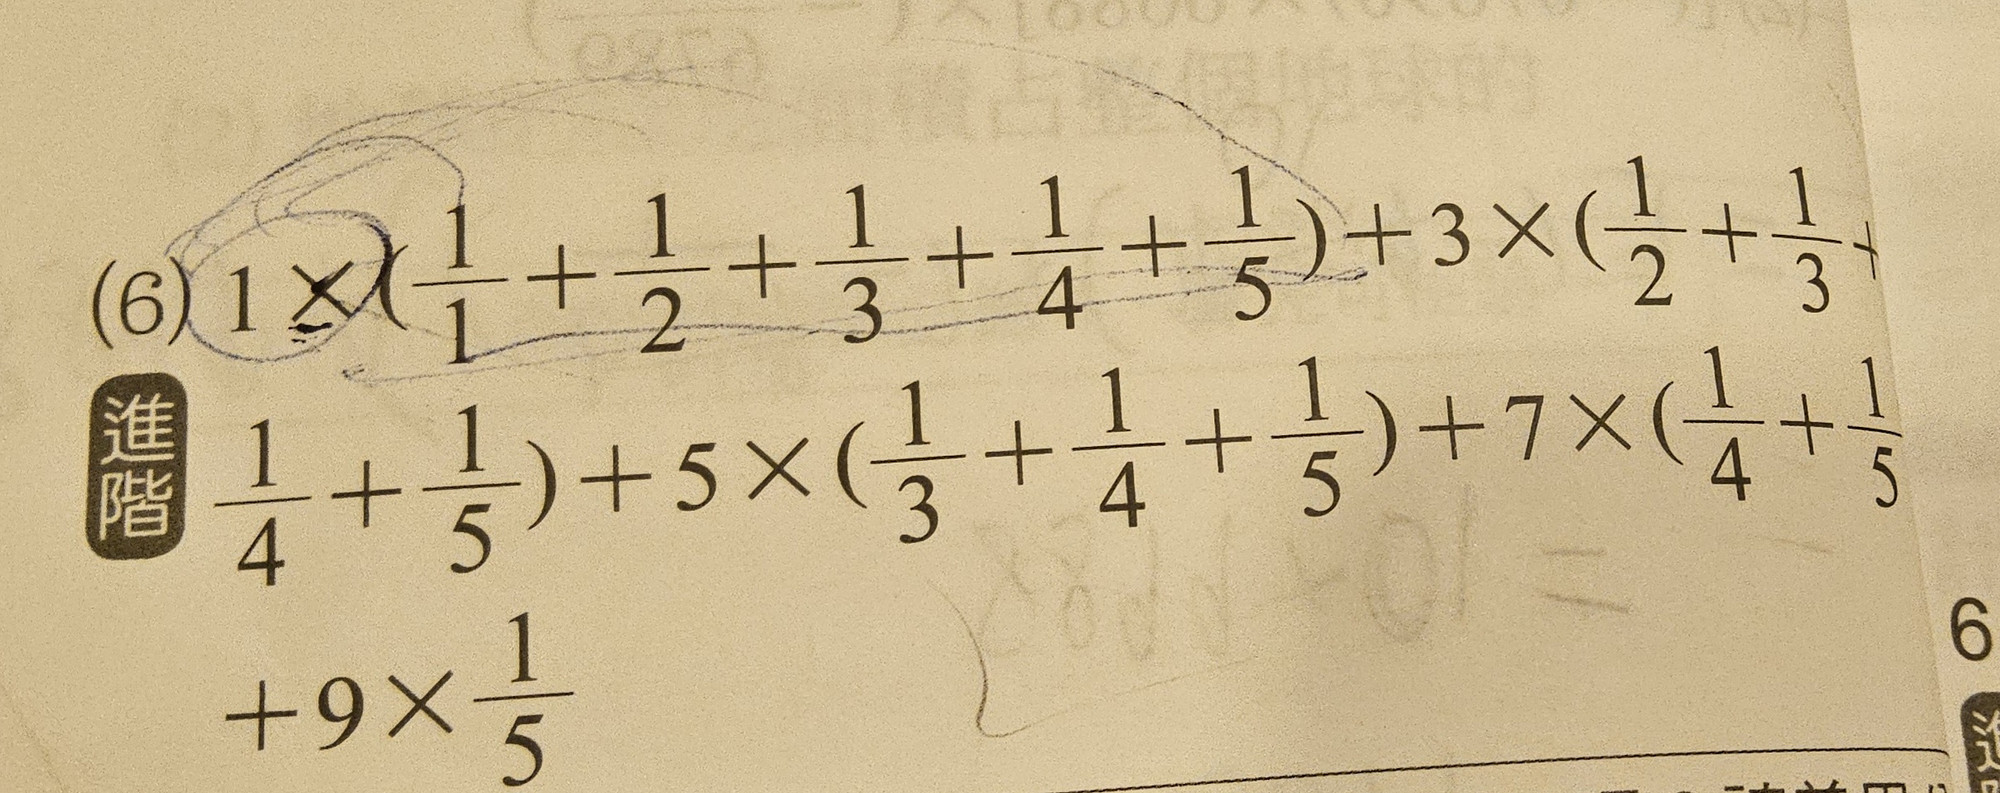 (6) 1×(1/1+1/2+1/3+1/4+1/5)+3×(1/2+1/3+
進階 1/4+1/5)+5×(1/3+1/4+1/5)+7×(1/4+1/5
+9×1/5
6